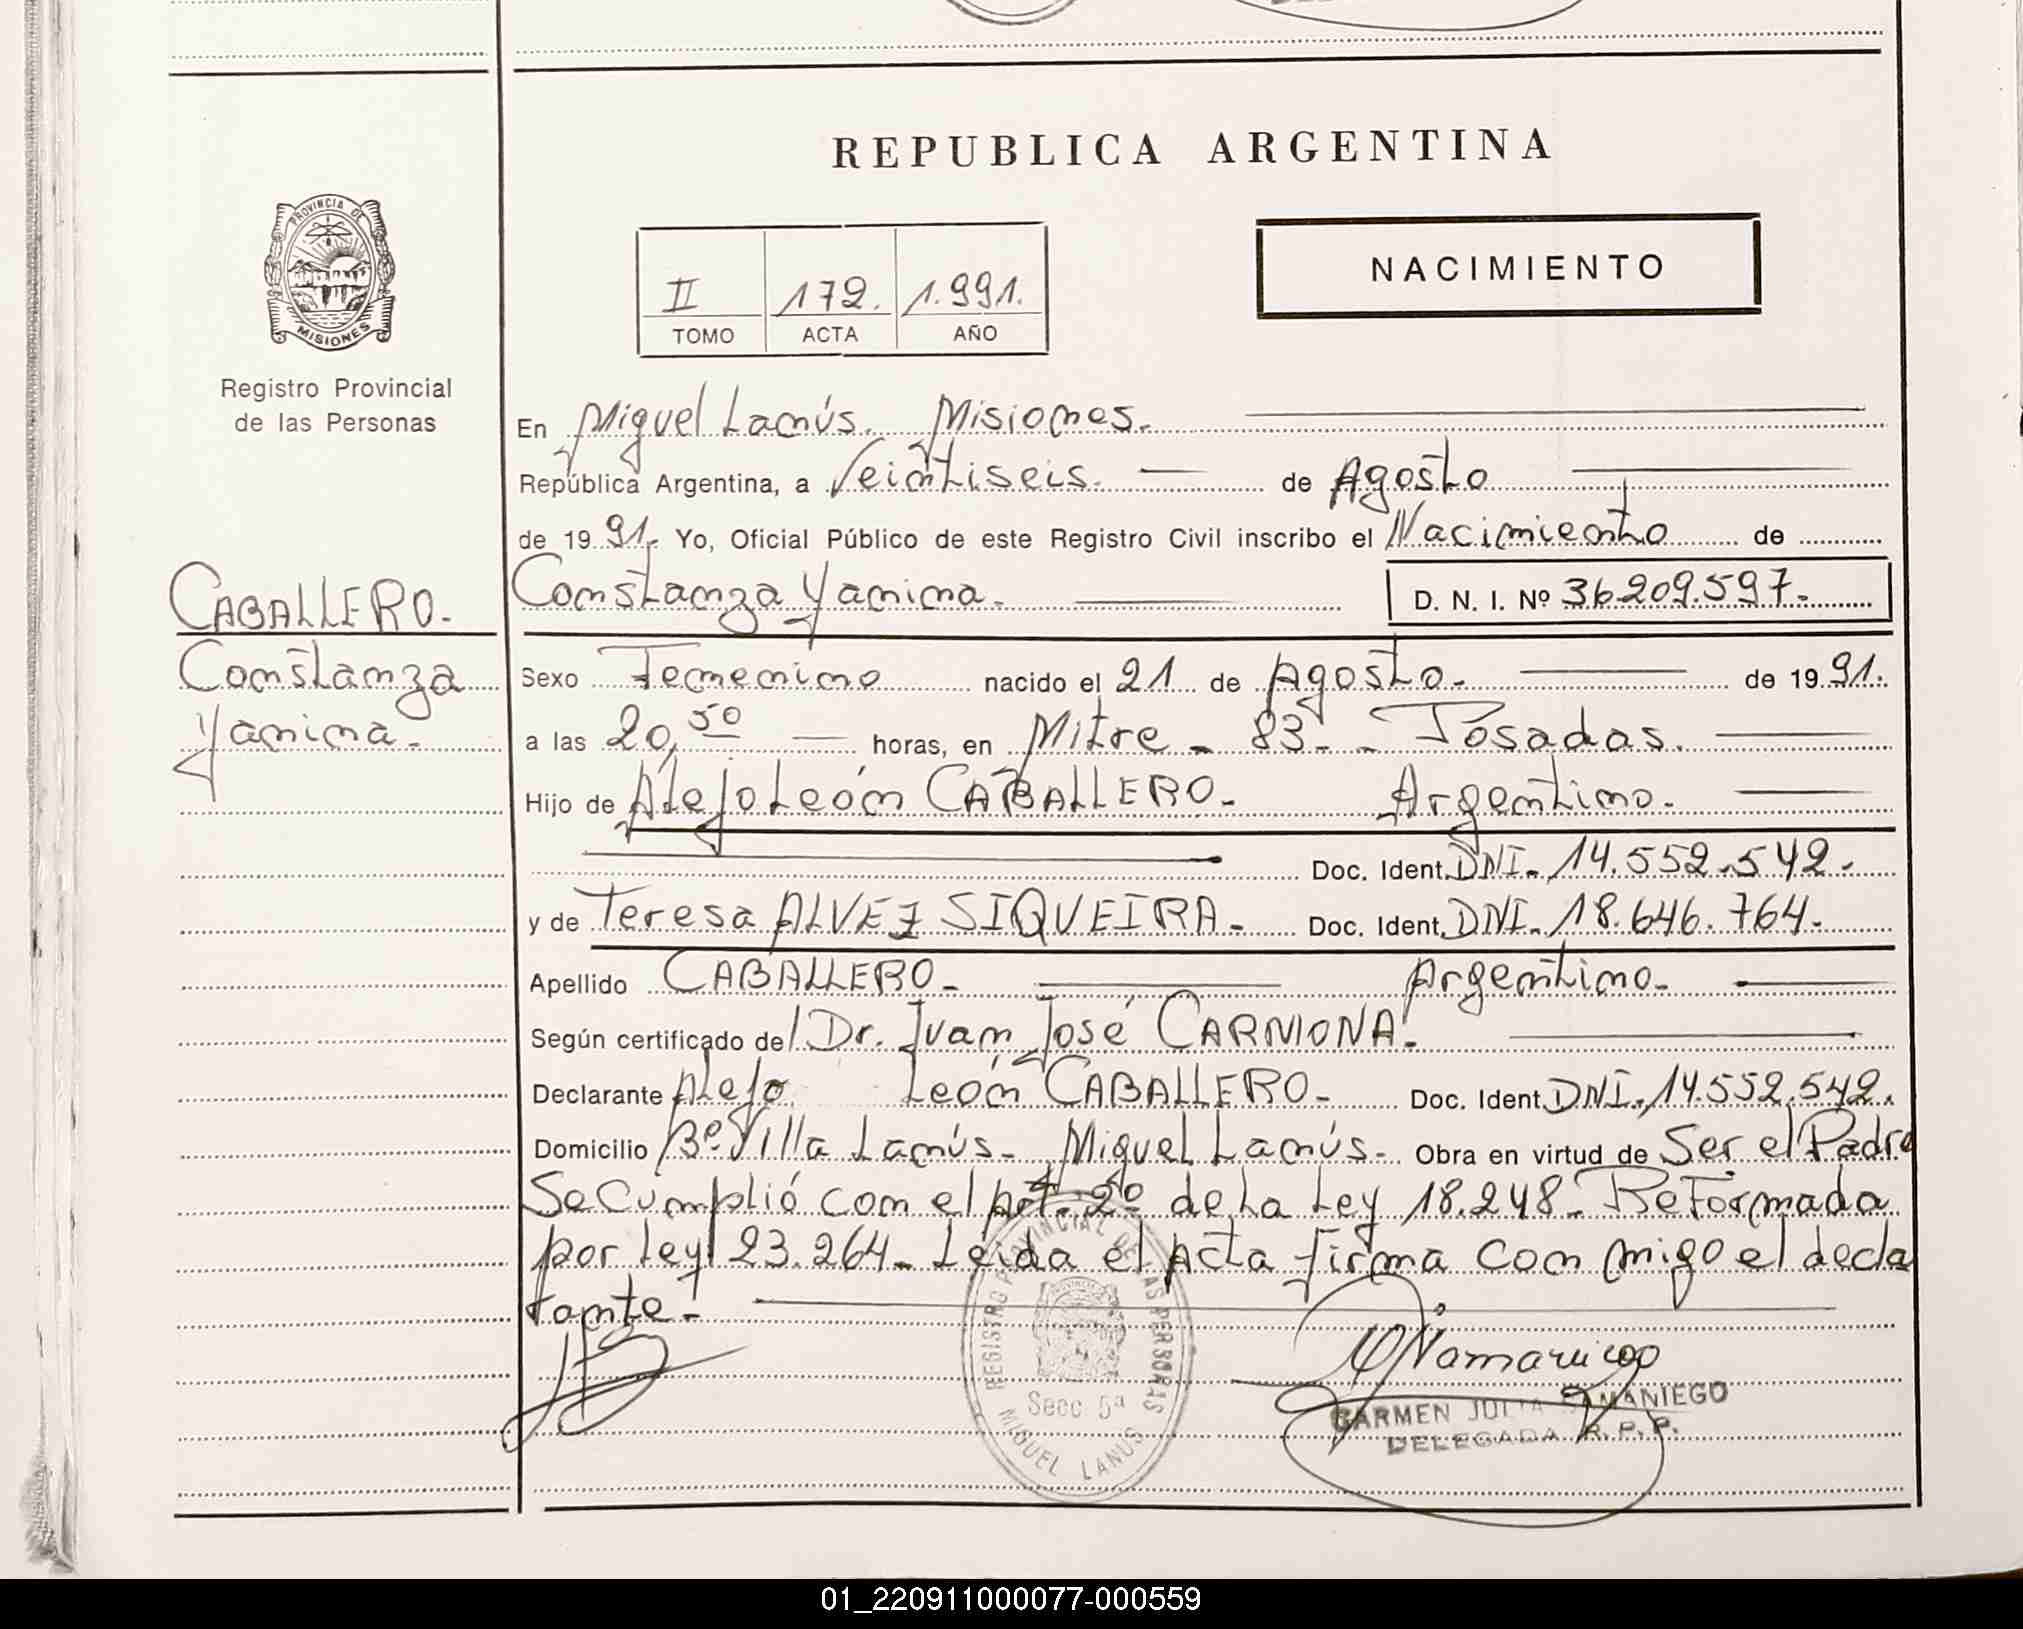 REPUBLICA ARGENTINA
PROVINCIA DE
MISIONES
Registro Provincial
de las Personas
II 172. 1.991.
TOMO ACTA AÑO
NACIMIENTO
En Miguel Lanús. Misiones.
República Argentina, a Veintiseis. de Agosto
de 19 91. Yo, Oficial Público de este Registro Civil inscribo el Nacimiento de
CABALLERO.
Constanza
Yanina.
Constanza Yanina. D. N. I. Nº 36.209.597.
Sexo Femenino nacido el 21 de Agosto. de 19 91.
a las 20,50 horas, en Mitre - 83 - Posadas.
Hijo de Alejo León CABALLERO. Argentino.
Doc. Ident. DNI. 14.552.542.
y de Teresa ALVEZ SIQVEIRA. Doc. Ident. DNI. 18.646.764.
Apellido CABALLERO. Argentino.
Según certificado del Dr. Juan José CARMONA.
Declarante Alejo León CABALLERO. Doc. Ident. DNI. 14.552.542.
Domicilio Bº Villa Lanús. Miguel Lanús. Obra en virtud de Ser el Padre
Se Cumplió con el Art. 2º de la Ley 18.248. Reformada
por Ley 23.264. Leída el Acta firma con migo el decla
rante.
REGISTRO PROVINCIAL DE LAS PERSONAS
Secc 5ª
MIGUEL LANUS
CARMEN JULIA SAMANIEGO
DELEGADA R.P.P.
01_220911000077-000559